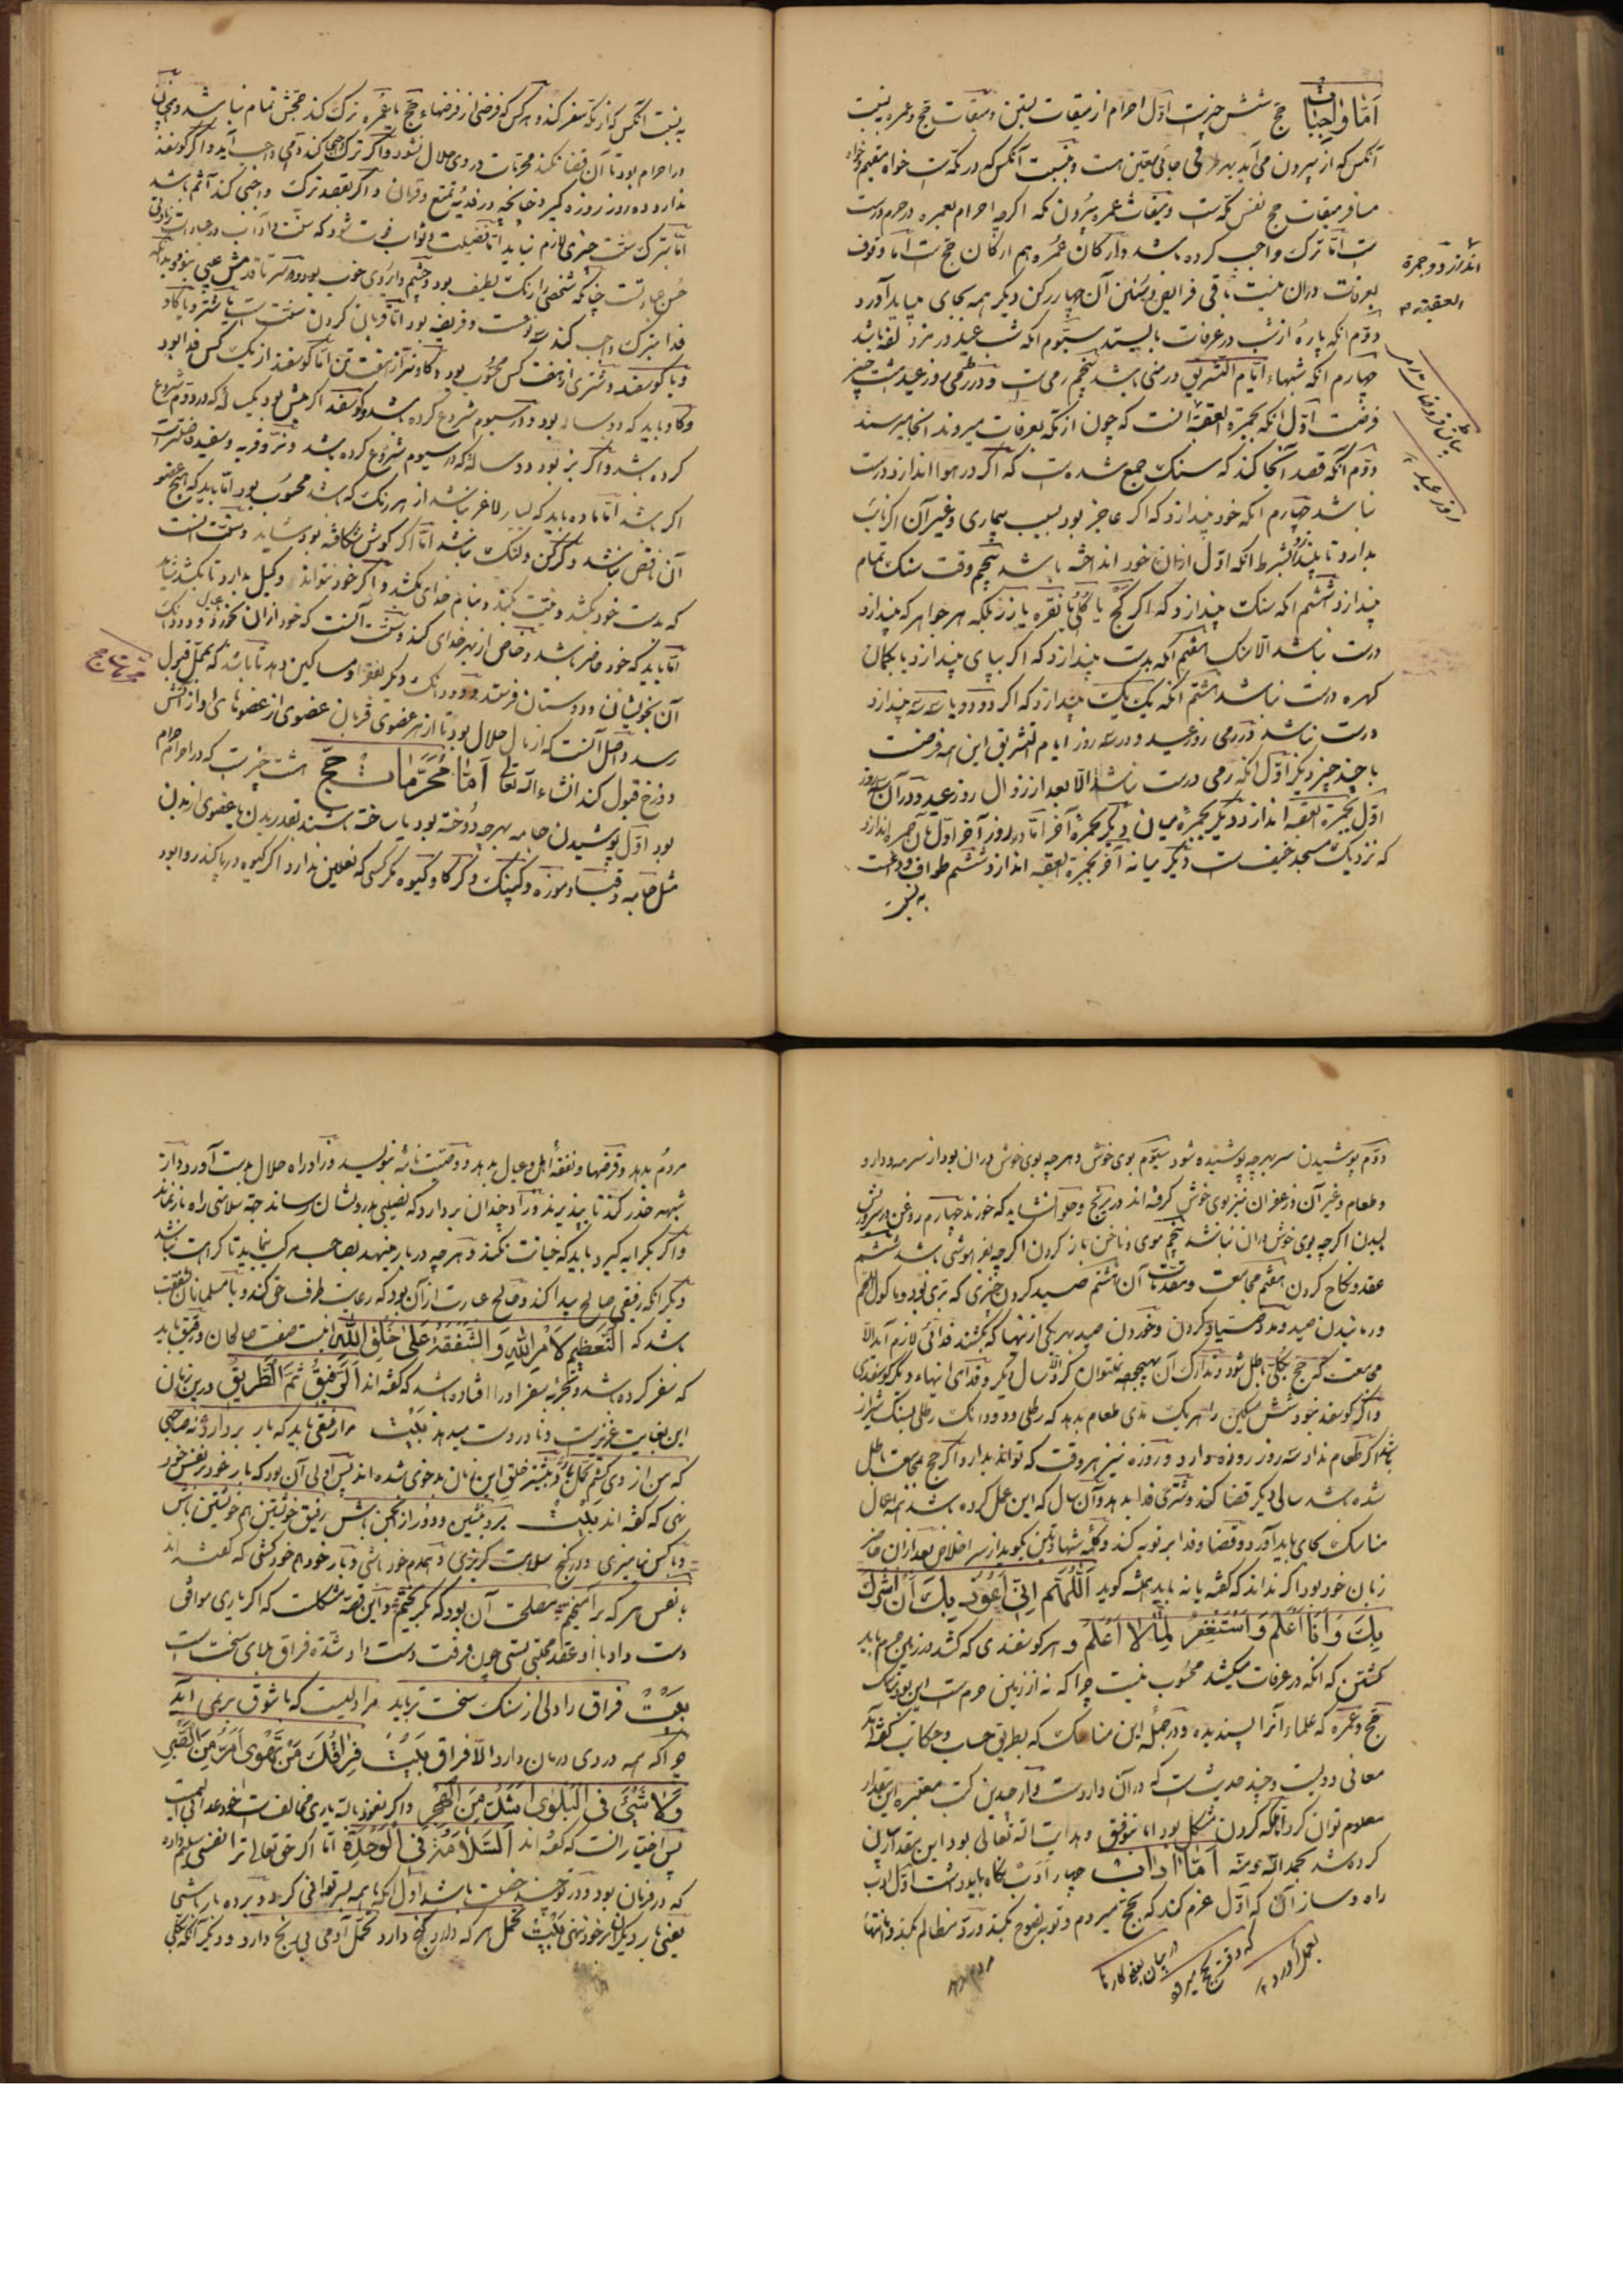 اما واجبات حج شش چیزست اول احرام از میقات بستن و میقات حج و عمره به نسبت
آنکس که از بیرون می آید بهر طرفی جایی معین است و به نسبت آنکس که در مکه است خواه مقیم و خواه
مسافر میقات حج نفس مکه است و میقات عمره بیرون مکه اگرچه احرام بعمره در حرم درست
است اما ترک واجب کرده باشد و ارکان عمره هم ارکان حج است اما وقوف
بعرفات در آن نیست باقی فرایض و سنن آن چهار رکن دیگر همه بجای میباید آورد
دوم انکه پاره از شب در عرفات بایستد سیوم انکه شب عید در مزدلفه باشد
چهارم انکه شبهاء ایام التشریق در منی باشد پنجم رمی است و در رمی روز عید هشت چیز
فرضست اول انکه بجمرة العقبه انست که چون از مکه بعرفات میروند انجا میرسند
دوم انکه قصد آنجا کند که سنک جمع شده است که اگر در هوا اندازد درست
نباشد چهارم انکه خود بیندازد که اگر عاجز بود بسبب بیماری و غیر آن اگر نایب
بدارد تا بیندازد بشرط انکه اول از آن خود انداخته باشد پنجم وقت سنک تمام
بیندازد ششم انکه سنک بیندازد که اگر گچ یا کلوخ یا نقره یا زر بلکه هر جواهر که بیندازد
درست نباشد الا سنک هفتم انکه بدست بیندازد که اگر بپای بیندازد یا بکمان
کهره درست نباشد هشتم انکه یک یک بیندازد که اگر دو دو یا سه سه بیندازد
درست نباشد و در رمی روز عید و در سه روز ایام التشریق این همه فرضست
با چند چیز دیگر اول انکه رمی درست نباشد الا بعد از زوال روز عید و در آن سه روز
اول بجمرة العقبه اندازد و دیگر بجمره میان و دیگر بجمره آخر اما در روز آخر اول بآن جمره اندازد
که نزدیک مسجد خیف است و دیگر میانه آخر بجمرة العقبه اندازد ششم طواف وداعست
به نسبت
اندازد و جمرة
العقبه
بیان فروضات رمی
روز عید
به نسبت آنکس که از مکه سفر کند و هر کس که فرضی از فرضهاء حج یا عمره ترک کند حجش تمام نباشد و همچنان
در احرام بود تا آن قضا نکند محرمات بر وی حلال نشود و اگر ترک واجبها کند دمی واجب آید و اگر گوسفند
ندارد ده روز روزه گیرد چنانچه در فدیه تمتع و قران و اگر بقصد ترک واجبی کند آثم باشد
اما بترک سنت چیزی لازم نیاید اما فضیلت و ثواب فوت شود که سنت و آداب در عبادات زیادتی
حسن عبادتست چنانکه شخصی را رنک لطیف بود و چشم و ابروی خوب بود و از سر تا قدمش عیبی نبود و بدانکه
فدا بترک واجب کند سنت و فریضه بود اما قربان کردن سنت است یا شتر و یا گاو
و یا گوسفند و شتری از هفت کس محسوب بود و گاو نیز از هفت تن اما گوسفند از یک کس فدا بود
و گاو باید که دو ساله بود و در سیوم شروع کرده باشد و گوسفند اگر میش بود یک ساله که در دوم شروع
کرده باشد و اگر بز بود دو ساله که در سیوم شروع کرده باشد و نر و فربه و سفید فاضلترست
اگر باشد اما ماده باید که بسیار لاغر نباشد از هر رنک که باشد محسوب بود اما باید که هیچ عضو
آن ناقص نباشد و گرگن و لنک نباشد اما اگر گوش شکافته بود شاید و سنت آنست
که بدست خود بکشد و نیت بکند و بنام خدای بکشد و اگر خود نتواند وکیل بدارد تا بکشد شاید
اما باید که خود حاضر باشد و خاص از بهر خدای کند و سنت آنست که خود از ان بخورد و دو دانک
آن بخویشان و دوستان فرستد و دو دانک دیگر بفقرا و مساکین دهد تا باشد که بمحل قبول
رسد و اصل آنست که از مال حلال بود تا از هر عضوی قربان عضوی از عضوهای او از آتش
دوزخ قبول کند انشاء الله تعالی اما محرمات حج هشت چیزست که در احرام حرام
بود اول پوشیدن جامه بهرچه دوخته بود یا ساخته باشند بقدر بدن یا عضوی از بدن
مثل جامه و قبا و موزه و کپنک و کرکا و گیوه مگر کسی که نعلین ندارد اگر گیوه در پا کند روا بود
محرمات حج
دوم پوشیدن سر بهرچه پوشیده شود سیوم بوی خوش و هرچه بوی خوش در آن بود از سرمه و دارو
و طعام و غیر آن و زعفران نیز بوی خوش گرفته اند در برنج و حلوا نشاید که خورند چهارم روغن در سر و ریش
لیدن اگرچه بوی خوش در ان نباشد پنجم موی و ناخن باز کردن اگرچه بفراموشی باشد ششم
عقد و نکاح کردن هفتم مجامعت و مقدمات آن هشتم صید کردن چیزی که بری بود و ماکول اللحم
و رمانیدن صید و مدد صیاد کردن و خوردن صید بهر یکی از اینها که بکشند فدائی لازم آید الا
مجامعت که حج بکلی باطل شود و تدارک آن بهیچوجه نتوان کرد الا سال دیگر و فدای اینهاء دیگر گوسفندی
و اگر گوسفند نبود شش مسکین را هر یک مدی طعام بدهد که رطلی و دو دانک رطلی بسنک شیراز
باشد اگر طعام ندارد سه روز روزه بدارد و روزه نیز هر وقت که تواند بدارد و اگر حج بمجامعت باطل
شده باشد سالی دیگر قضا کند و شتری فدا بدهد و آن سال که این عمل کرده باشد همه اعمال
مناسک بجای باید آورد و قضا و فدا بر توبه کند و کلمه شهادتین بگوید از سر اخلاص بعد از آن حاضر
زبان خود بود اگر نداند که گفته یا نه باید همیشه گوید اللهم انی اعوذ بک ان اشرک
بک و انا اعلم و استغفر لما لا اعلم و هر گوسفندی که کشد در زمین حرم باید
کشتن که انکه در عرفات میکشد محسوب نیست چرا که نه از زمین حرم است این بود مناسک
حج و عمره که علماء آنرا پسندیده و در جمله این مناسک که بطریق حساب و حکایات گفته آمد
معانی دویست و چند حدیث است که در آن واردست و از چندین کتب معتبره این مقدار
معلوم توان کرد بلکه کردن مشکل بود اما بتوفیق و هدایت الله تعالی بود این بقدر آسان
کرده شد بحمد الله و منه اما آداب چهار ادب نگاه باید داشت اول ادب
راه و ساز آن که اول عزم کند که بحج میروم و توبه نصوح بکند و رد مظالم بکند و امانتهاء
مردم بدهد
در بیان بعضی کارها
که در وقت حج میرود
بعمل آورد
مردم بدهد و قرضها و نفقه اهل و عیال بدهد و وصیت نامه بنویسد و زاد راه حلال بدست آورد و از
شبهه حذر کند تا بپذیرند و زاد چندان بردارد که نصیبی بدرویشان رساند جهة سلامتی راه باز نماند
و اگر بکرایه گیرد باید که خیانت نکند و هرچه در بار مینهد بصاحب مرکب بنماید تا کراهت نباشد
دیگر انکه رفیقی صالح پیدا کند و صالح عبارت از آن بود که رعایت طرف حق کند و با مسلمانان شفقت
باشد که التعظیم لامر الله و الشفقة علی خلق الله اینست صفت صالحان و رفیق باید
که سفر کرده باشد و تجربه سفر او را افتاده باشد که گفته اند الرفیق ثم الطریق و درین زمان
این بغایت عزیزست و نادر دست میدهد بیت مرا رفیقی باید که بار بردارد نه صاحبی
که من از وی کشم تحمل بار و بیشتر خلق این زمان بدخوی شده اند پس اولی آن بود که بار خود بر نفس خود
نهی که گفته اند بیت برو بنشین و دور از انجمن باش رفیق خویشتن هم خویشتن باش
و با کس نیامیزی و در کنج سلامت گریزی و همدم خود باشی و بار خود هم خود کشی که گفته اند
با نفس هر که برآمیختم مصلحت آن بود که بگریختم و این قصه مشکلست که اگر یاری موافق
دست داد با او عقد محبتی بستی چون فرقت دست داد شدة فراق بلای سخت است
بیت فراق را دلی از سنک سخت تر باید مرا دلیست که با شوق بر نمی آید
چرا که همه دردی درمان دارد الا فراق بیت فراقک من تهوی امر من الصبر
و لا شیء فی البلوی امثلت من الهجر و اگر نعوذ بالله یاری مخالفست خود عذاب الیم است
پس اختیار آنست که گفته اند السلامة فی الوحدة اما اگر حق تعالی ترا نفسی سلیم داده
که در فرمان بود و در تو چند خصلت باشد اول انکه با همه بسر توانی کرد و برده بار باشی
یعنی بار دیگران بر خود نهی بیت تحمل هر که دارد گنج دارد تحمل آدمی بی رنج دارد و دیگر آنکه بکلی